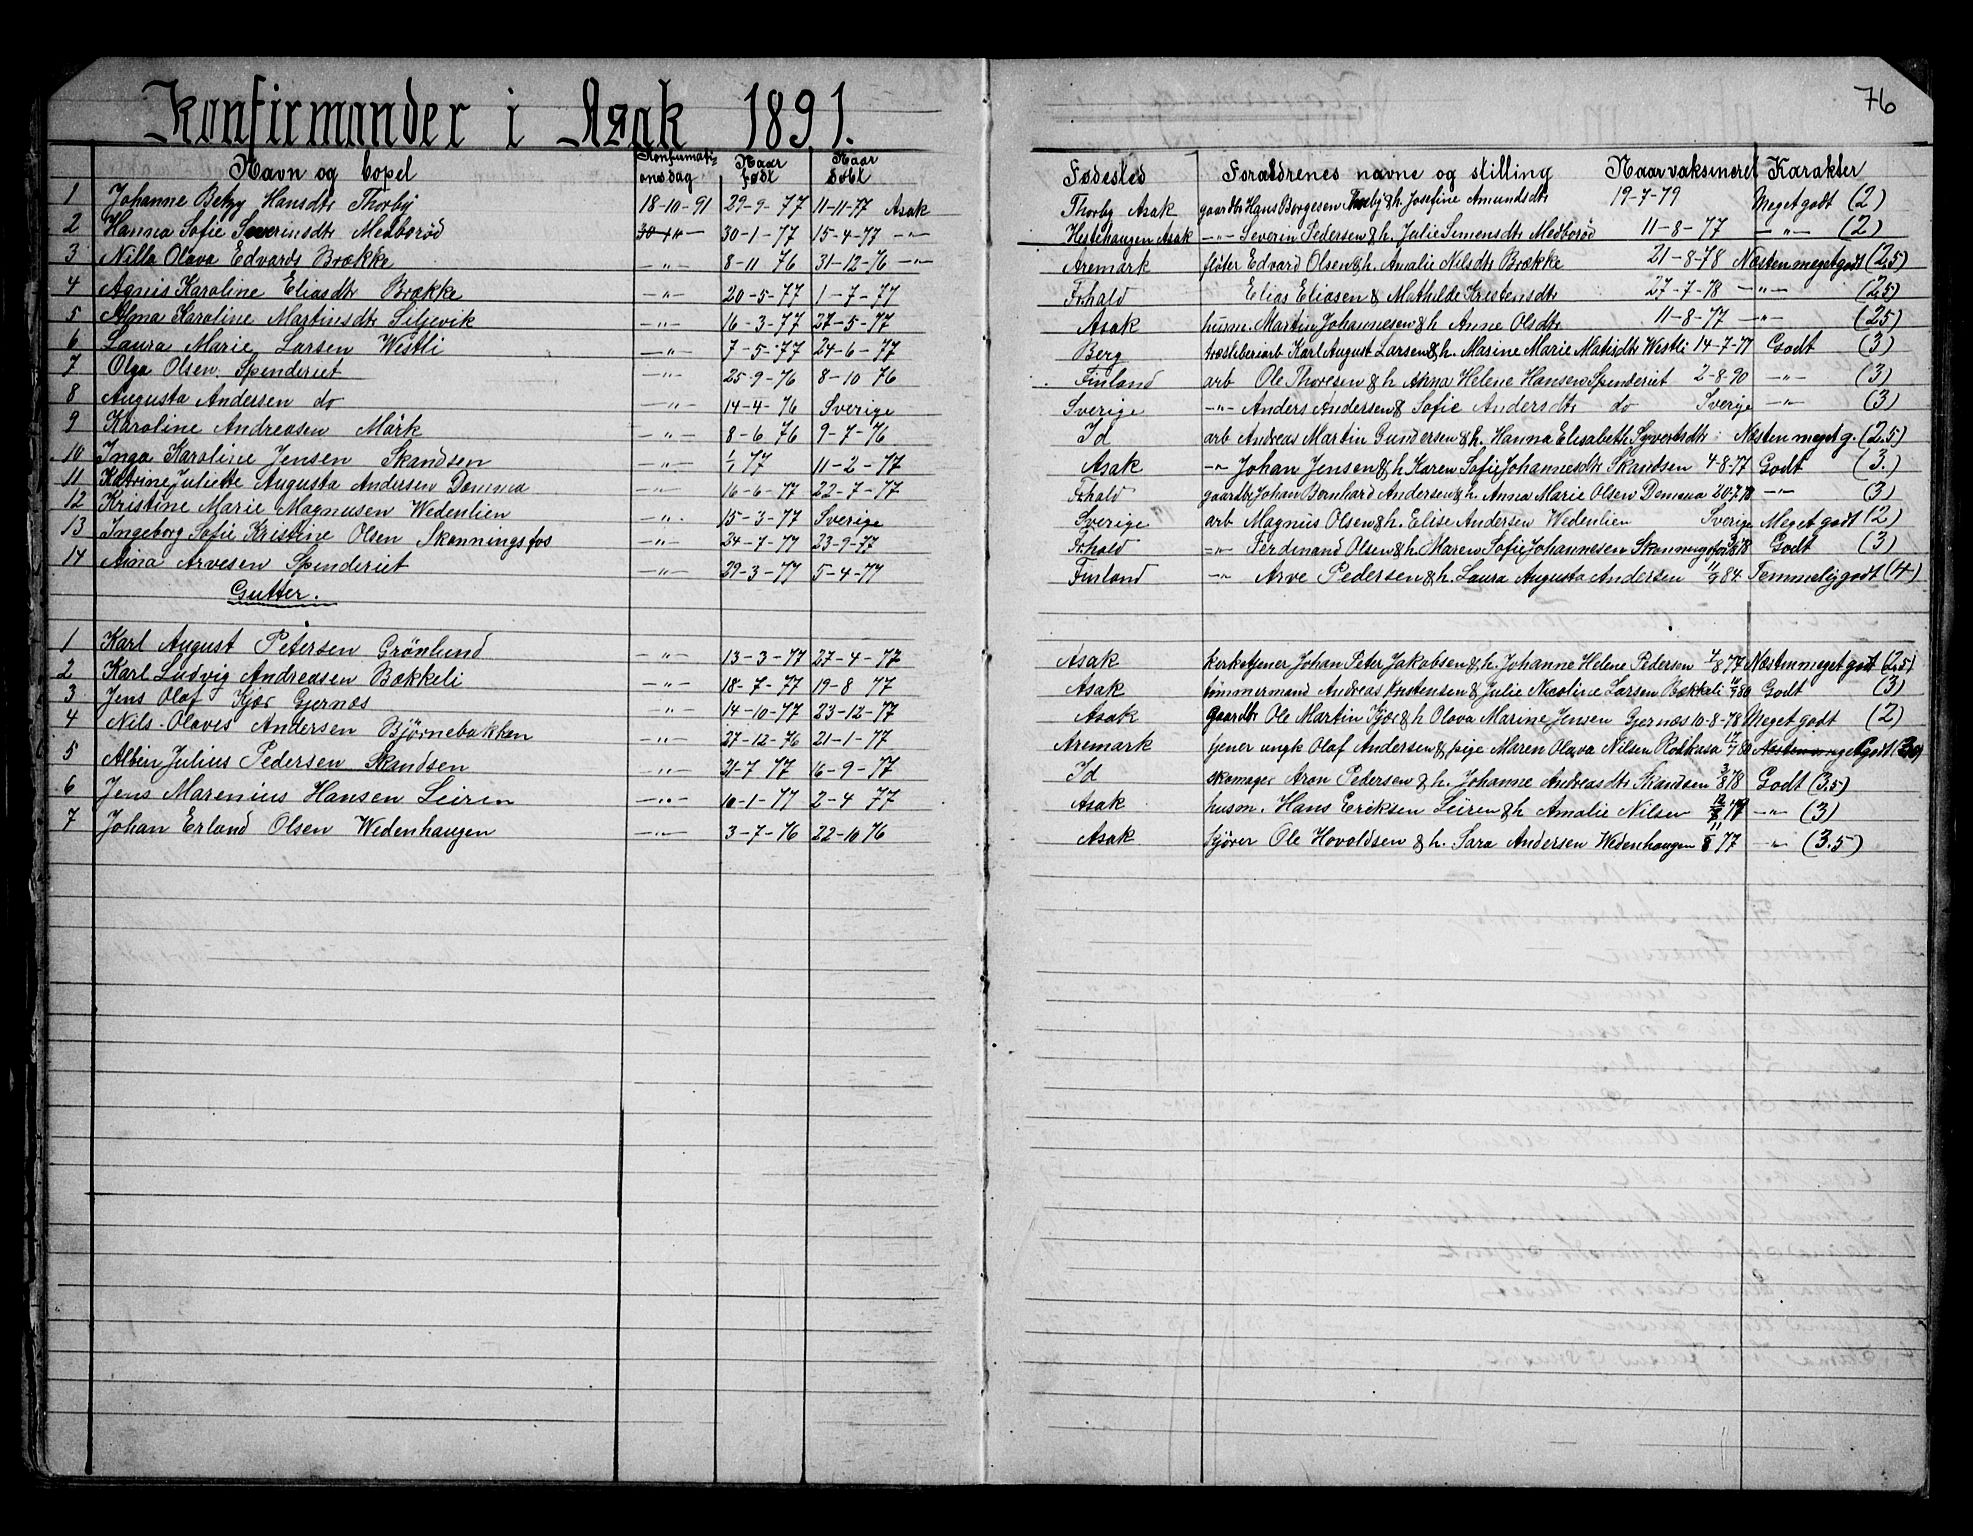 76
Konfirmander i Asak 1891.
Navn og bopel Konfirmationsdag Naar født Naar døbt Fødested Foraldrenes navne og stilling Naar vaksineret Karakter
1 Johanne Betzy Hansdtr Thorby 18-10-91 29-9-77 11-11-77 Asak Thorby Asak gaardbr Hans Borgesen Thorby & h. Josefine Amundsdtr 19-7-79 Meget godt (2)
2 Hanna Sofie Severinsdtr Medborød 30-1-77 15-4-77 -"- Hestehaugen Asak -"- Severin Pedersen & h. Julie Simensdtr Medborød 11-8-77 -"- (2)
3 Nilla Olava Edvards Brække -"- 8-11 76 31-12-76 -"- Aremark fløter Edvard Olsen & h. Amalie Nilsdtr Brække 21-8-78 Næsten meget godt (2,5)
4 Agnis Karoline Eliasdtr Brække -"- 20-5-77 1-7-77 Frhald Elias Eliasen & Mathilde Kristensdtr 27-7-78 -"- (2,5)
5 Alma Karoline Martinsdtr Siljevik -"- 16-3-77 27-5-77 Asak husm. Martin Johannesen & h Anne Olsdtr 11-8-77 -"- (2,5)
6 Laura Marie Larsen Westli -"- 7-5-77 24-6-77 Berg træsliberiarb Karl August Larsen & h. Masine Marie Matisdtr Westli 14-7-77 Godt (3)
7 Olga Olsen Spenderiet -"- 25-9-76 8-10 76 Finland arb Ole Thoresen & h Anna Helene Hansen Spenderiet 2-8-90 -"- (3)
8 Augusta Andersen do -"- 14-4-76 Sverige Sverige -"- Anders Andersen & Sofie Andersdtr do Sverige -"- (3)
9 Karoline Andreasen Mörk -"- 8-6 76 9-7-76 Id arb Andreas Martin Gundersen & h. Hanna Elisabeth Syvertsdtr Næsten meget g. (2,5)
10 Inga Karoline Jensen Skandsen -"- 1/1 77 11-2-77 Asak -"- Johan Jensen & h Karen Sofie Johannesdtr Skantsen 4-8-77 Godt (3.)
11 Katrine Juliette Augusta Andersen Domma -"- 16-6-77 22-7-77 Frhald gaardbr Johan Bernhard Andersen & h. Anna Marie Olsen Demma 20-7-78 -"- (3)
12 Kristine Marie Magnusen Wedenlien -"- 15-3-77 Sverige Sverige arb Magnus Olsen & h. Elise Andersen Wedenlien Sverige Meget godt (2)
13 Ingeborg Sofie Kristine Olsen Skonningsfos -"- 24-7-77 23-9-77 Frhald -"- Ferdinand Olsen & h. Maren Sofie Johannesen Skonningsfos 3/8 78 Godt (3)
14 Aina Arvesen Spenderiet -"- 29-3-77 5-4-77 Finland -"- Arve Pedersen & h. Laura Augusta Andersen 11/9 84 Temmelig godt (4)
Gutter.
1 Karl August Petersen Grönlund -"- 13-3-77 27-4-77 Asak kirketjener Johan Peter Jakobsen & h. Johanne Helene Pedersen 4/8 77 Næsten meget godt (2,5)
2 Karl Ludvig Andreasen Bakkeli -"- 18-7-77 19-8 77 Asak tömmermand Andreas Kristensen & Julie Nicoline Larsen Bækkeli 80 Godt (3)
3 Jens Olaf Kjær Gjernæs -"- 14-10-77 23-12-77 Asak Gaardbr Ole Martin Kjær & h Olava Marine Jensen Gjernæs 10-8-78 Meget godt (2)
4 Nils Olaves Andersen Bjørnebakken -"- 27-12-76 21-1-77 Aremark tjener ungk Olaf Andersen & pige Maren Olava Nilsen Rødkasa Næsten meget godt
5 Albin Julius Pedersen Skandsen -"- 21-7 77 16-9-77 Id skomager Aron Pedersen & h. Johanne Andreasdtr Skandsen 3/8 78 Godt (3.5)
6 Jens Marenius Hansen Leiren -"- 10-1-77 2-4 77 Asak husm. Hans Ericksen Leiren & h Amalie Nilsen -"- (3)
7 Johan Erland Olsen Wedenhaugen -"- 3-7-76 22-10 76 Asak kjører Ole Hovoldsen & h. Sara Andersen Wedenhaugen 11/8 77 -"- (3.5)